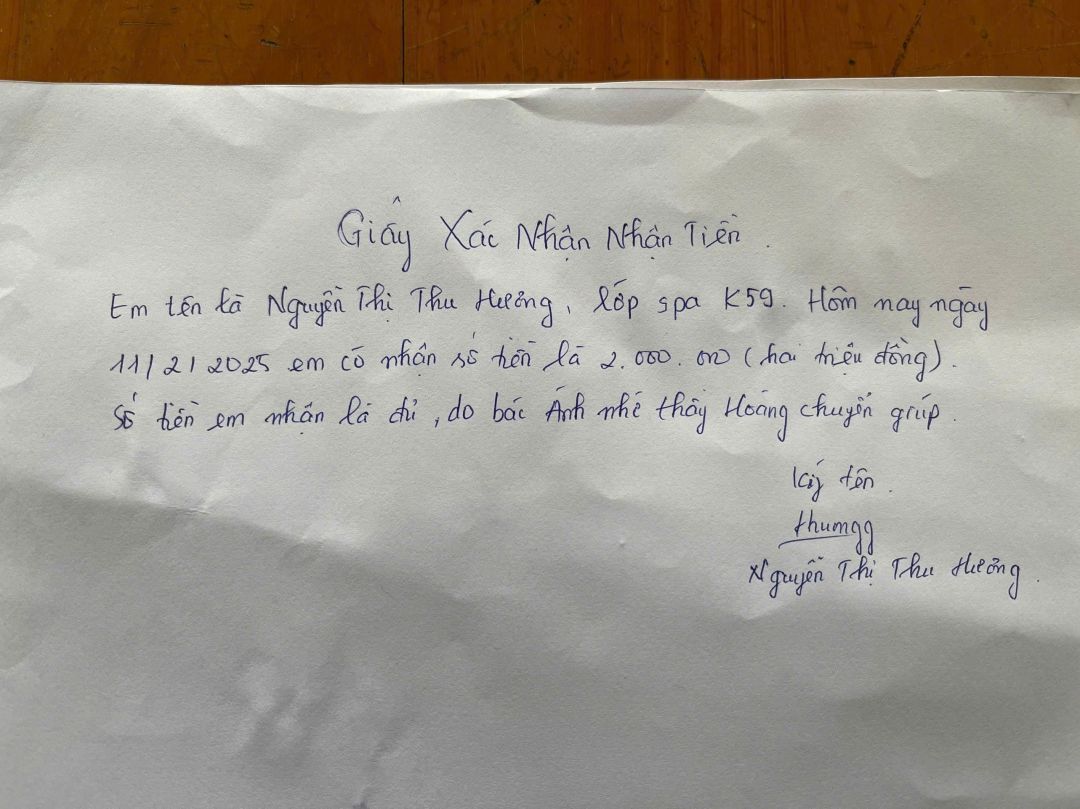 Giấy Xác Nhận Nhận Tiền.
Em tên là Nguyễn Thị Thu Hưởng, lớp spa K59. Hôm nay ngày
11/2/2025 em có nhận số tiền là 2.000.000 (hai triệu đồng).
Số tiền em nhận là đủ, do bác Ánh nhé thầy Hoàng chuyển grúp.
Ký tên.
thumgg
Nguyễn Thị Thu Hưởng.